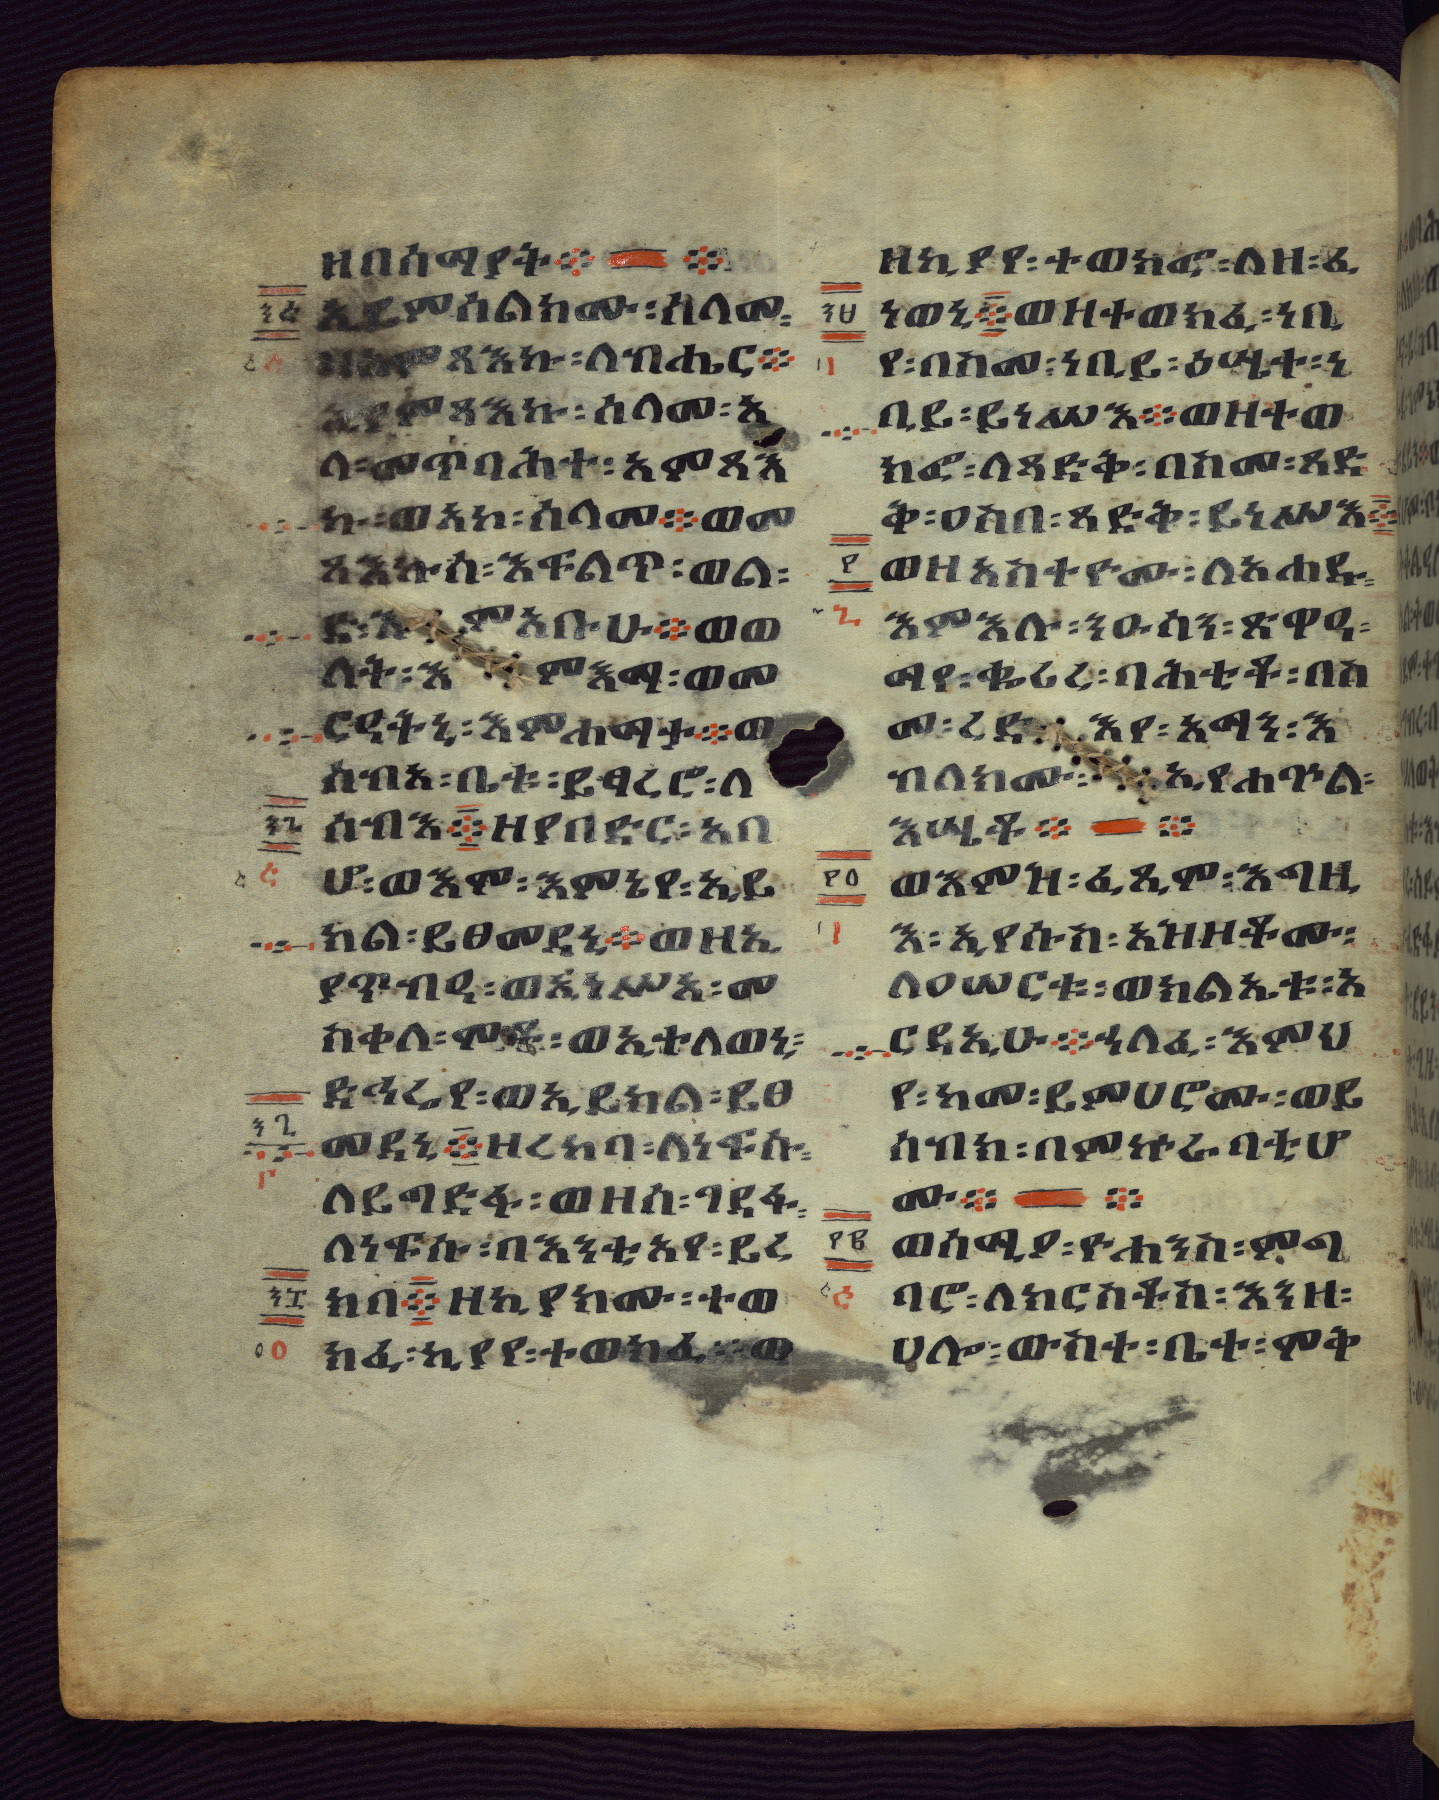 ዘበሰማያት፨ ፨
፺፭ ኢይምሰልክሙ፡ሰላመ፡
፭ ዘአምጻእኩ፡ለብሔር፨
ኢያምጻእኩ፡ሰላመ፡አ
ላ፡መጥባሕተ፡አምጻእ
ኩ፡ወአኮ፡ሰላመ፨ወመ
ጻእኩሰ፡እፍልጥ፡ወል፡
ደ፡እምአቡሁ፨ወወ
ለተ፡እምእማ፡ወመ
ርዓተኒ፡እምሐማታ፨ወ
ሰብአ፡ቤቱ፡ይፃረሮ፡ለ
፺፮ ሰብእ፨ዘያበድር፡አባ
፭ ሁ፡ወእሞ፡እምኔየ፡ኢይ
ክል፡ይፀመደኒ፨ወዘኢ
ያጥብዐ፡ወኢነሥአ፡መ
ስቀለ፡ሞቱ፡ወኢተለወኒ፡
ድኅሬየ፡ወኢይክል፡ይፀ
፺፯ መደኒ፨ዘረከባ፡ለነፍሱ፡
፫ ለይግድፋ፡ወዘሰ፡ገደፋ፡
ለነፍሱ፡በእንቲአየ፡ይረ
፺፰ ከባ፨ዘኪያክሙ፡ተወ
፩ ክፈ፡ኪያየ፡ተወክፈ፡ወ
ዘኪያየ፡ተወክፎ፡ለዘ፡ፈ
፺፱ ነወኒ፨ወዘተወክፈ፡ነቢ
፲ የ፡በስመ፡ነቢይ፡ዕሤተ፡ነ
ቢይ፡ይነሥእ፨ወዘተወ
ክፎ፡ለጻድቅ፡በስመ፡ጻድ
ቅ፡ዐስበ፡ጻድቅ፡ይነሥእ፨
፻ ወዘአስተዮሙ፡ለአሐዱ፡
፮ እምእሉ፡ንዑሳን፡ጽዋዐ፡
ማየ፡ቈሪረ፡ባሕቲቶ፡በስ
መ፡ረድእየ፡አማን፡እ
ብለክሙ፡ኢየሐጕል፡
እሤቶ፨ ፨
፻፩ ወእምዝ፡ፈጺሞ፡እግዚ
፲ እ፡ኢየሱስ፡አዝዞቶሙ፡
ለዐሠርቱ፡ወክልኤቱ፡አ
ርዳኢሁ፨ኀለፈ፡እምህ
የ፡ከመ፡ይምሀሮሙ፡ወይ
ስብክ፡በምኵራባቲሆ
ሙ፨ ፨
፻፪ ወሰሚዖ፡ዮሐንስ፡ምግ
፭ ባሮ፡ለክርስቶስ፡እንዘ፡
ሀሎ፡ውስተ፡ቤተ፡ሞቅ